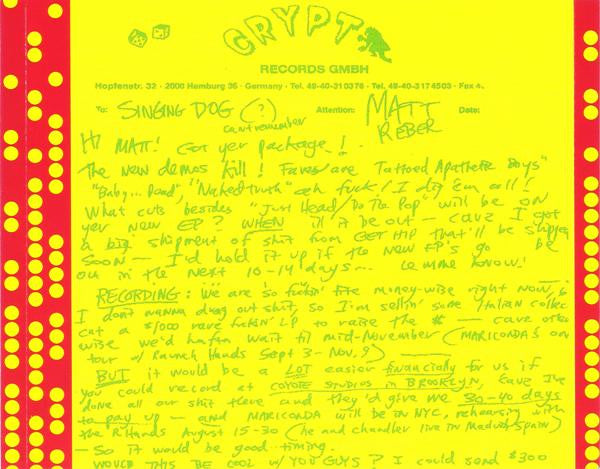 CRYPT
RECORDS GMBH
Hopfenstr. 32 · 2000 Hamburg 36 · Germany · Tel. 49-40-310376 · Tel. 49-40-3174503 · Fax 4.
To: SINGING DOG (?) Attention: MATT REBER Date:
can't remember
Hi MATT! Got yer package!
The new demos kill! Faves are "Tattoed Apathetic Boys"
"Baby... Dead", "Naked truth" aah fuck! I dig 'em all!
What cuts besides "Just Head/Do The Pop" will be on
yer NEW EP? WHEN it'll be out — cauz I got
a big shipment of shit from GET HIP that'll be shipped
SOON — I'd hold it up if the NEW EP's go be
out in the next 10-14 days... Lemme know!
RECORDING: We are so fuckin' money-wise right now,
I don't wanna drag out shit, so I'm sellin' some Italian collec
cat a $1000 rare fuckin' LP to raise the $ — cauz other
wise we'd hafta wait til mid-November (MARICONDA'S on
tour w/ Raunch Hands Sept 3-Nov. 9)
BUT it would be a LOT easier financially for us if
you could record at COYOTE STUDIOS in BROOKLYN, cauz I've
done all our shit there and they'd give me 30-40 days
to pay up — and MARICONDA will be in NYC, rehearsing with
the R'Hands August 15-30 (he and chandler live in Madrid Spain)
— So it would be good timing.
WOULD THIS BE COOL w/ YOU GUYS? I could send $300